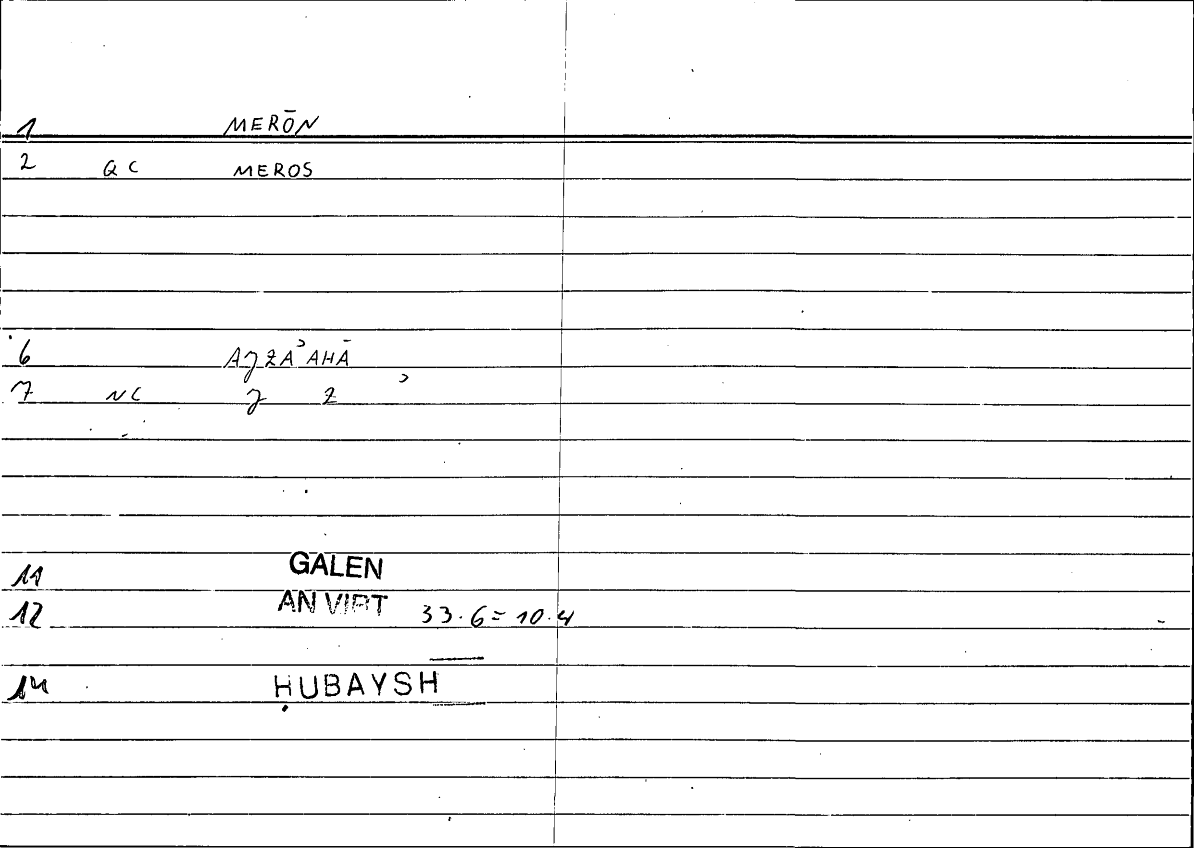 1 MERŌN
2 QC MEROS
6 AJZAʾAHĀ
7 NC J Z ʾ
11 GALEN
12 AN VIRT 33.6=10.4
14 ḤUBAYSH